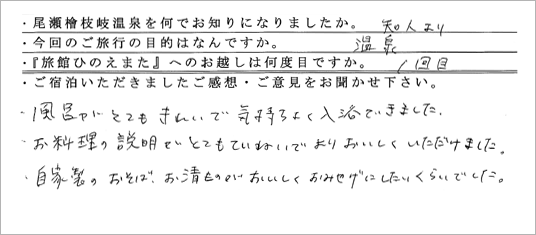 ・尾瀬檜枝岐温泉を何でお知りになりましたか。 知人より
・今回のご旅行の目的はなんですか。 温泉
・『旅館ひのえまた』へのお越しは何度目ですか。 1回目
・ご宿泊いただきましたご感想・ご意見をお聞かせ下さい。
・風呂がとてもきれいで気持ちよく入浴できました。
・お料理の説明がとてもていねいでよりおいしくいただけました。
・自家製のおそば、お漬ものがおいしくおみやげにしたいくらいでした。